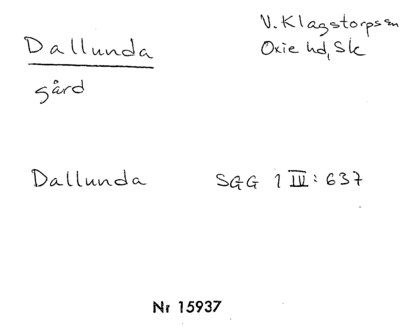 Dallunda
V. Klagstorps sn
Oxie hd, Sk
gård
Dallunda SGG 1 IV: 637
Nr 15937